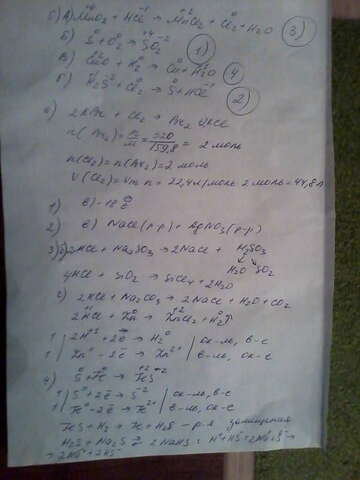 5) А) MnO₂ + HCl⁻¹ → MnCl₂ + Cl₂⁰ + H₂O 3)
Б) S⁰ + O₂⁰ → S⁺⁴O₂⁻² 1)
В) Cu⁺²O + H₂⁰ → Cu⁰ + H₂O 4
Г) H₂S⁻² + Cl₂⁰ → S⁰ + HCl⁻¹ 2)
2 KBr + Cl₂ → Br₂ + 2KCl
n(Br₂) = m/M = 320/159,8 = 2 моль
n(Cl₂) = n(Br₂) = 2 моль
V(Cl₂) = Vm n = 22,4 л/моль 2 моль = 44,8 л
1) в) - 18 ē
2) в) NaCl (р-р) + AgNO₃ (р-р)
3) 2HCl + Na₂SO₃ → 2NaCl + H₂SO₃
H₂O SO₂
4HCl + SiO₂ → SiCl₄ + 2H₂O
2HCl + Na₂CO₃ → 2NaCl + H₂O + CO₂
2HCl + Zn⁰ → Zn⁺²Cl₂ + H₂⁰↑
1 | 2H⁺¹ + 2ē → H₂⁰ | ок-ль, в-е
1 | Zn⁰ - 2ē → Zn²⁺ | в-ль, ок-е
4) S⁰ + Fe⁰ → Fe⁺²S⁻²
1 | S⁰ + 2ē → S⁻² | ок-ль, в-е
1 | Fe⁰ - 2ē → Fe²⁺ | в-ль, ок-е
FeS + H₂ → Fe + H₂S - р-я замещения
H₂S + Na₂S ⇄ 2 NaHS